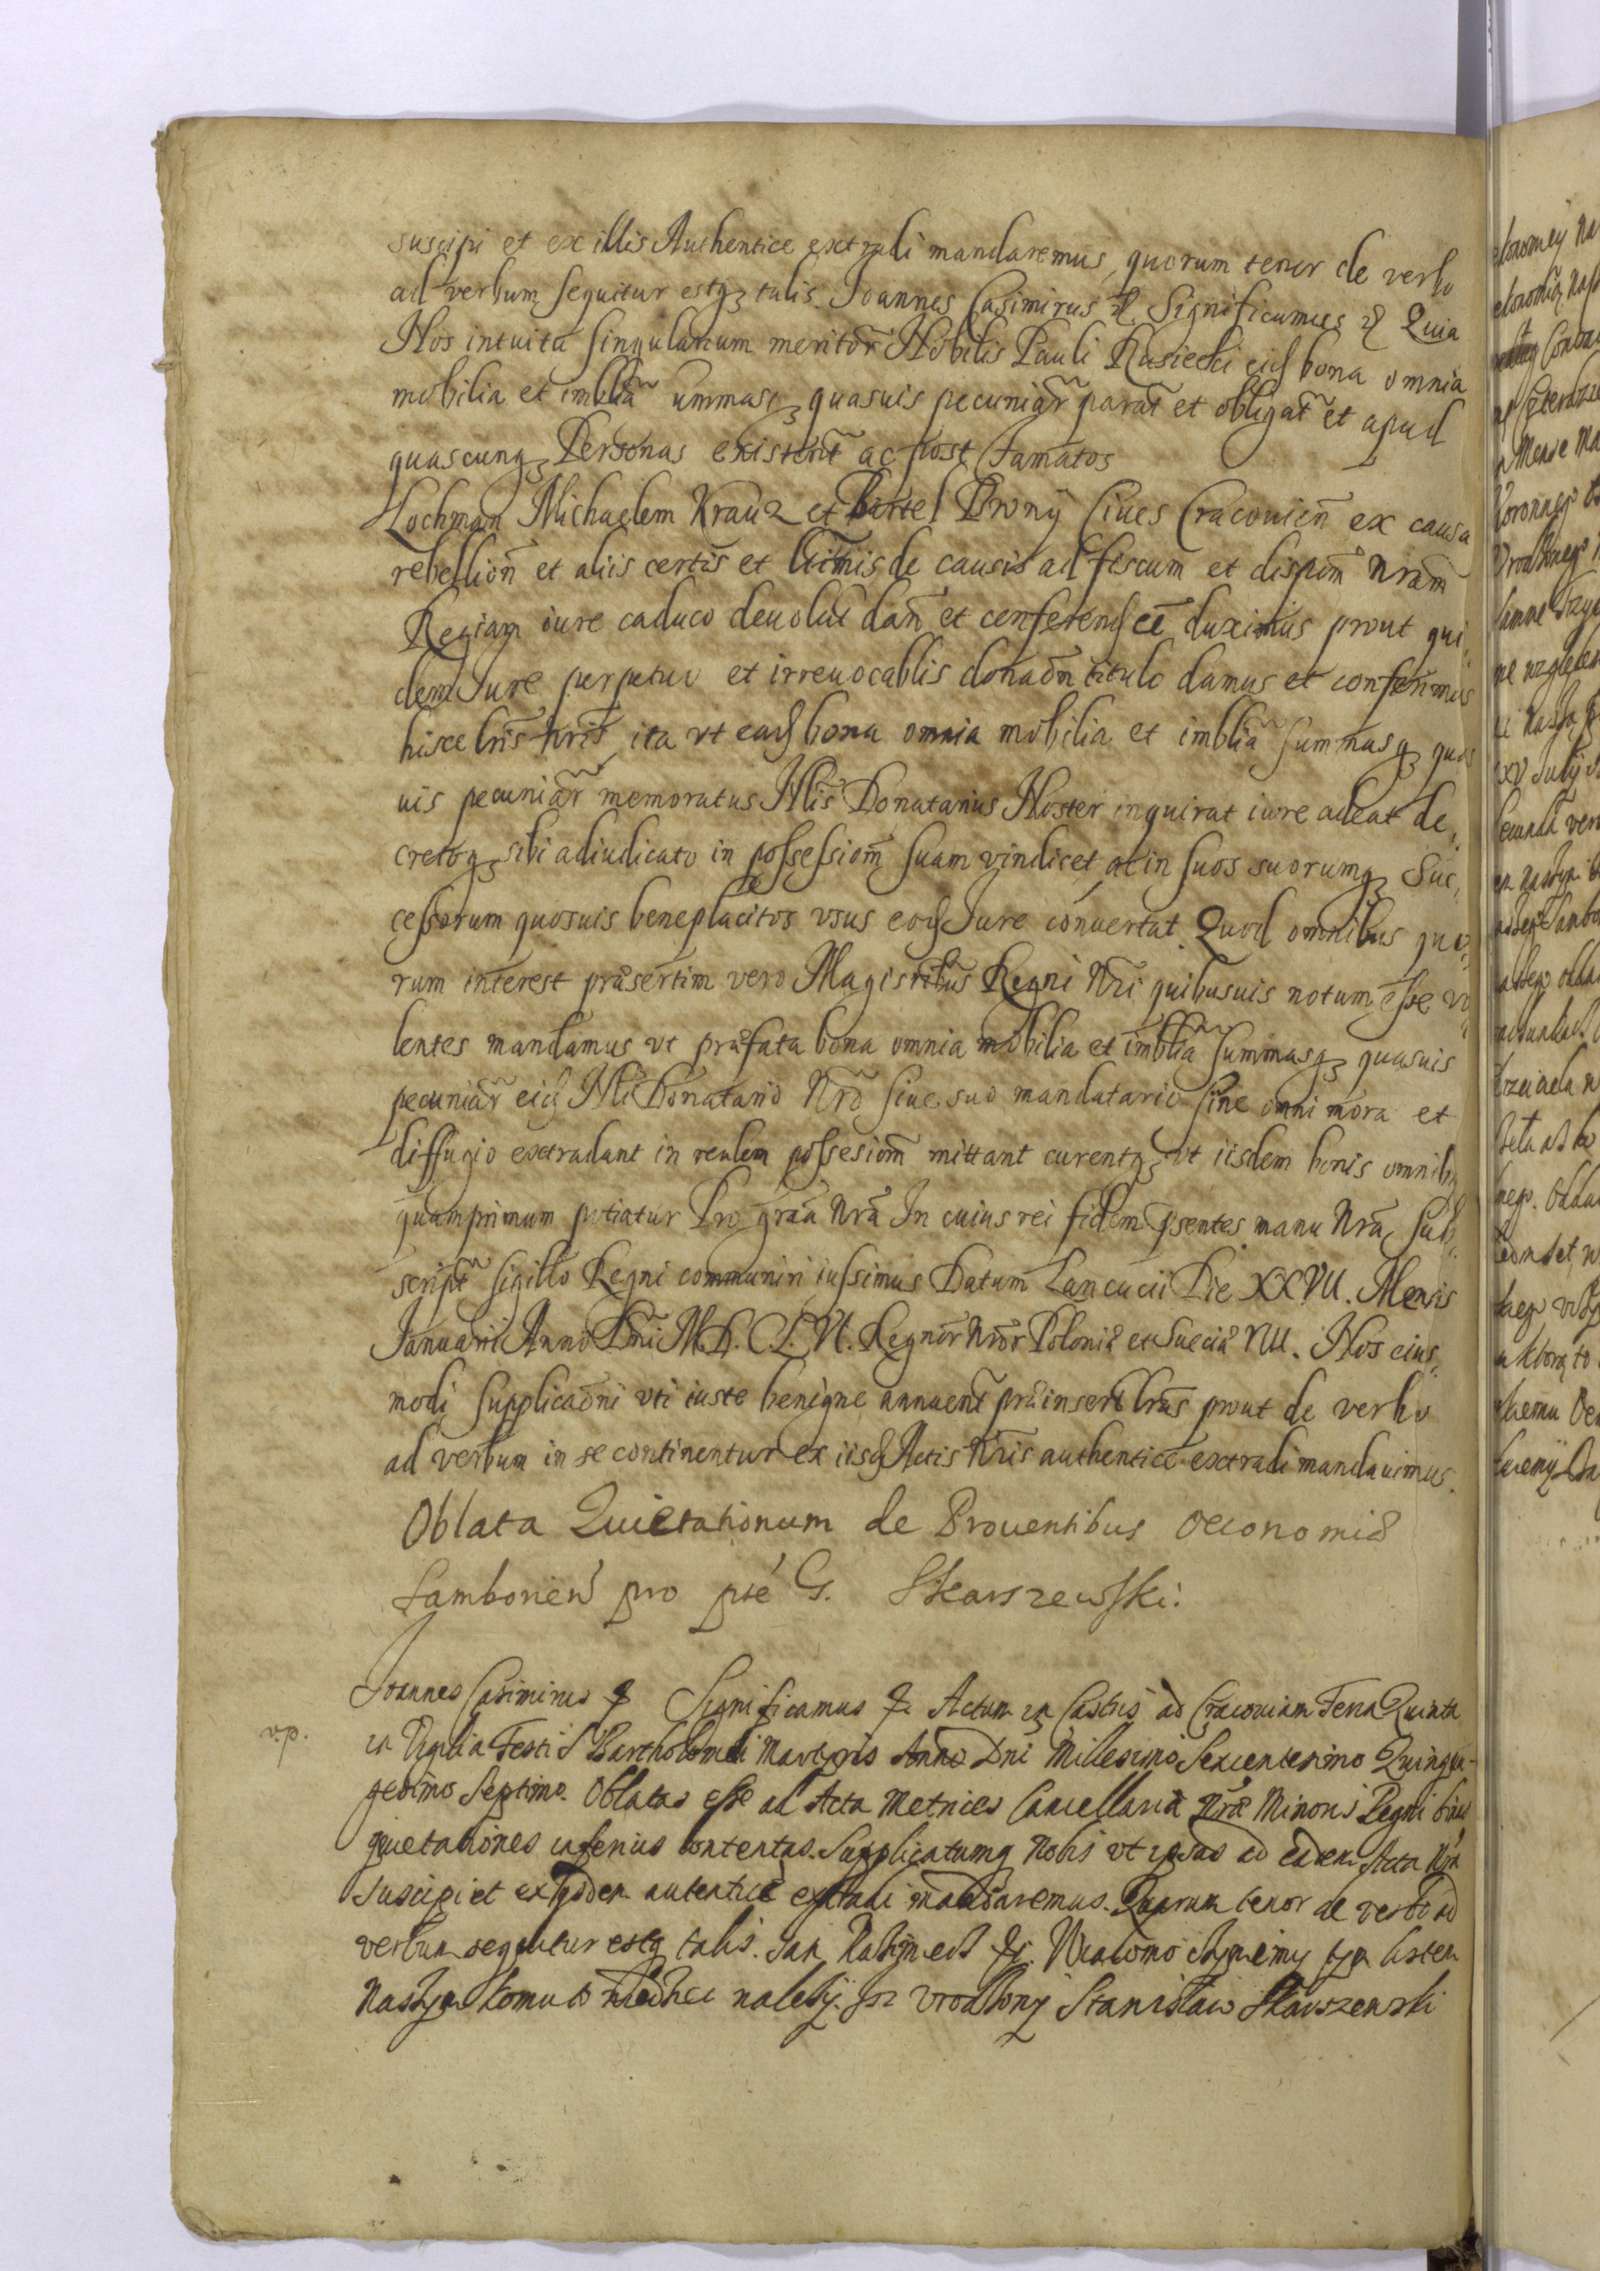 suscipi et ex illis Authentice extradi mandaremus, quorum tenor de verbo
ad verbum sequitur estq₃ talis. Joannes Casimirus Significamus Quia
Nos intuitu singularium meritor̃ Nobilis Pauli Rusiecki eid bona omnia
mobilia et imblia ummasq₃ quasuis pecuniar̃ parat̃ et obligat̃ et apud
quascunq₃ Personas existent̃ ac post famatos
Lochman Michaelem Krauz et Bartel Prony Ciues Cracouien̄ ex causa
rebellion̄ et aliis certis et ltimis de causis ad fiscum et dispom̄ Nram̄
Regiam iure caduco deuolut dan̄ et conferend eē duximus prout qui,
dem Jure perpetuo et irreuocablis donaōn titulo damus et conferimus
hisce lris nris, ita vt ead bona omnia mobilia et imblia summasq₃ quas
uis pecuniar̃ memoratus Nlis Donatarius Noster inquirat iure adeat de,
cretoq₃ sibi adiudicato in possessiom̄ suam vindicet ac in suos suorumq₃ Suc,
cessorum quosuis beneplacitos vsus eod Jure conuertat. Quod omnibus quo,
rum interest præsertim vero Magistibus Regni Nri quibusuis notum esse vo
lentes mandamus vt præfata bona omnia mobilia et imblia summasq₃ quasuis
pecuniar̃ eid Nli Donatario Nro siue suo mandatario sine omni mora et
diffugio extradant in realem possesiom̄ mittant curentq₃ vt iisdem bonis omnib₃
quamprimum potiatur Pro graa Nra In cuius rei fidem psentes manu Nra sub,
script̃ sigillo Regni communiri iussimus Datum Lancucii Die XXVII. Mensis
Januarii Anno Dni M.D.C.L.VI. Regnor̃ Nror̃ Poloniæ et Sueciæ VIII. Nos eius,
modi supplicaōni vti iuste benigne annuent̃ præinsert lras prout de verbo
ad verbum in se continentur ex iisd Actis Nris authentice extradi mandauimus.
Oblata Quietationum de Prouentibus Oeconomiæ
Samborien̄ pro pte G. Skarszewski.
Joannes Casimirus Significamus Actum in Castris ad Cracouiam Feria Quinta
in Vigilia Festi S Bartholomei Martyris Anno Dni Millesimo Sexcentesimo Quinqua-
gesimo Septimo. Oblatas esse ad Acta Metrices Cancellariæ Nræ Minoris Regni binas
quietationes inferius contentas. Supplicatumq Nobis vt ipsas ad eadem Acta Nra
suscipi et ex iisdem autentice extradi mandaremus. Quarum tenor de verbo ad
verbum sequitur estq talis. Jan Kazimierz Wiadomo czyniemy tym listem
Naszym komu to wiedziec nalezy. Jz Vrodzony Stanislaw Skarszewski